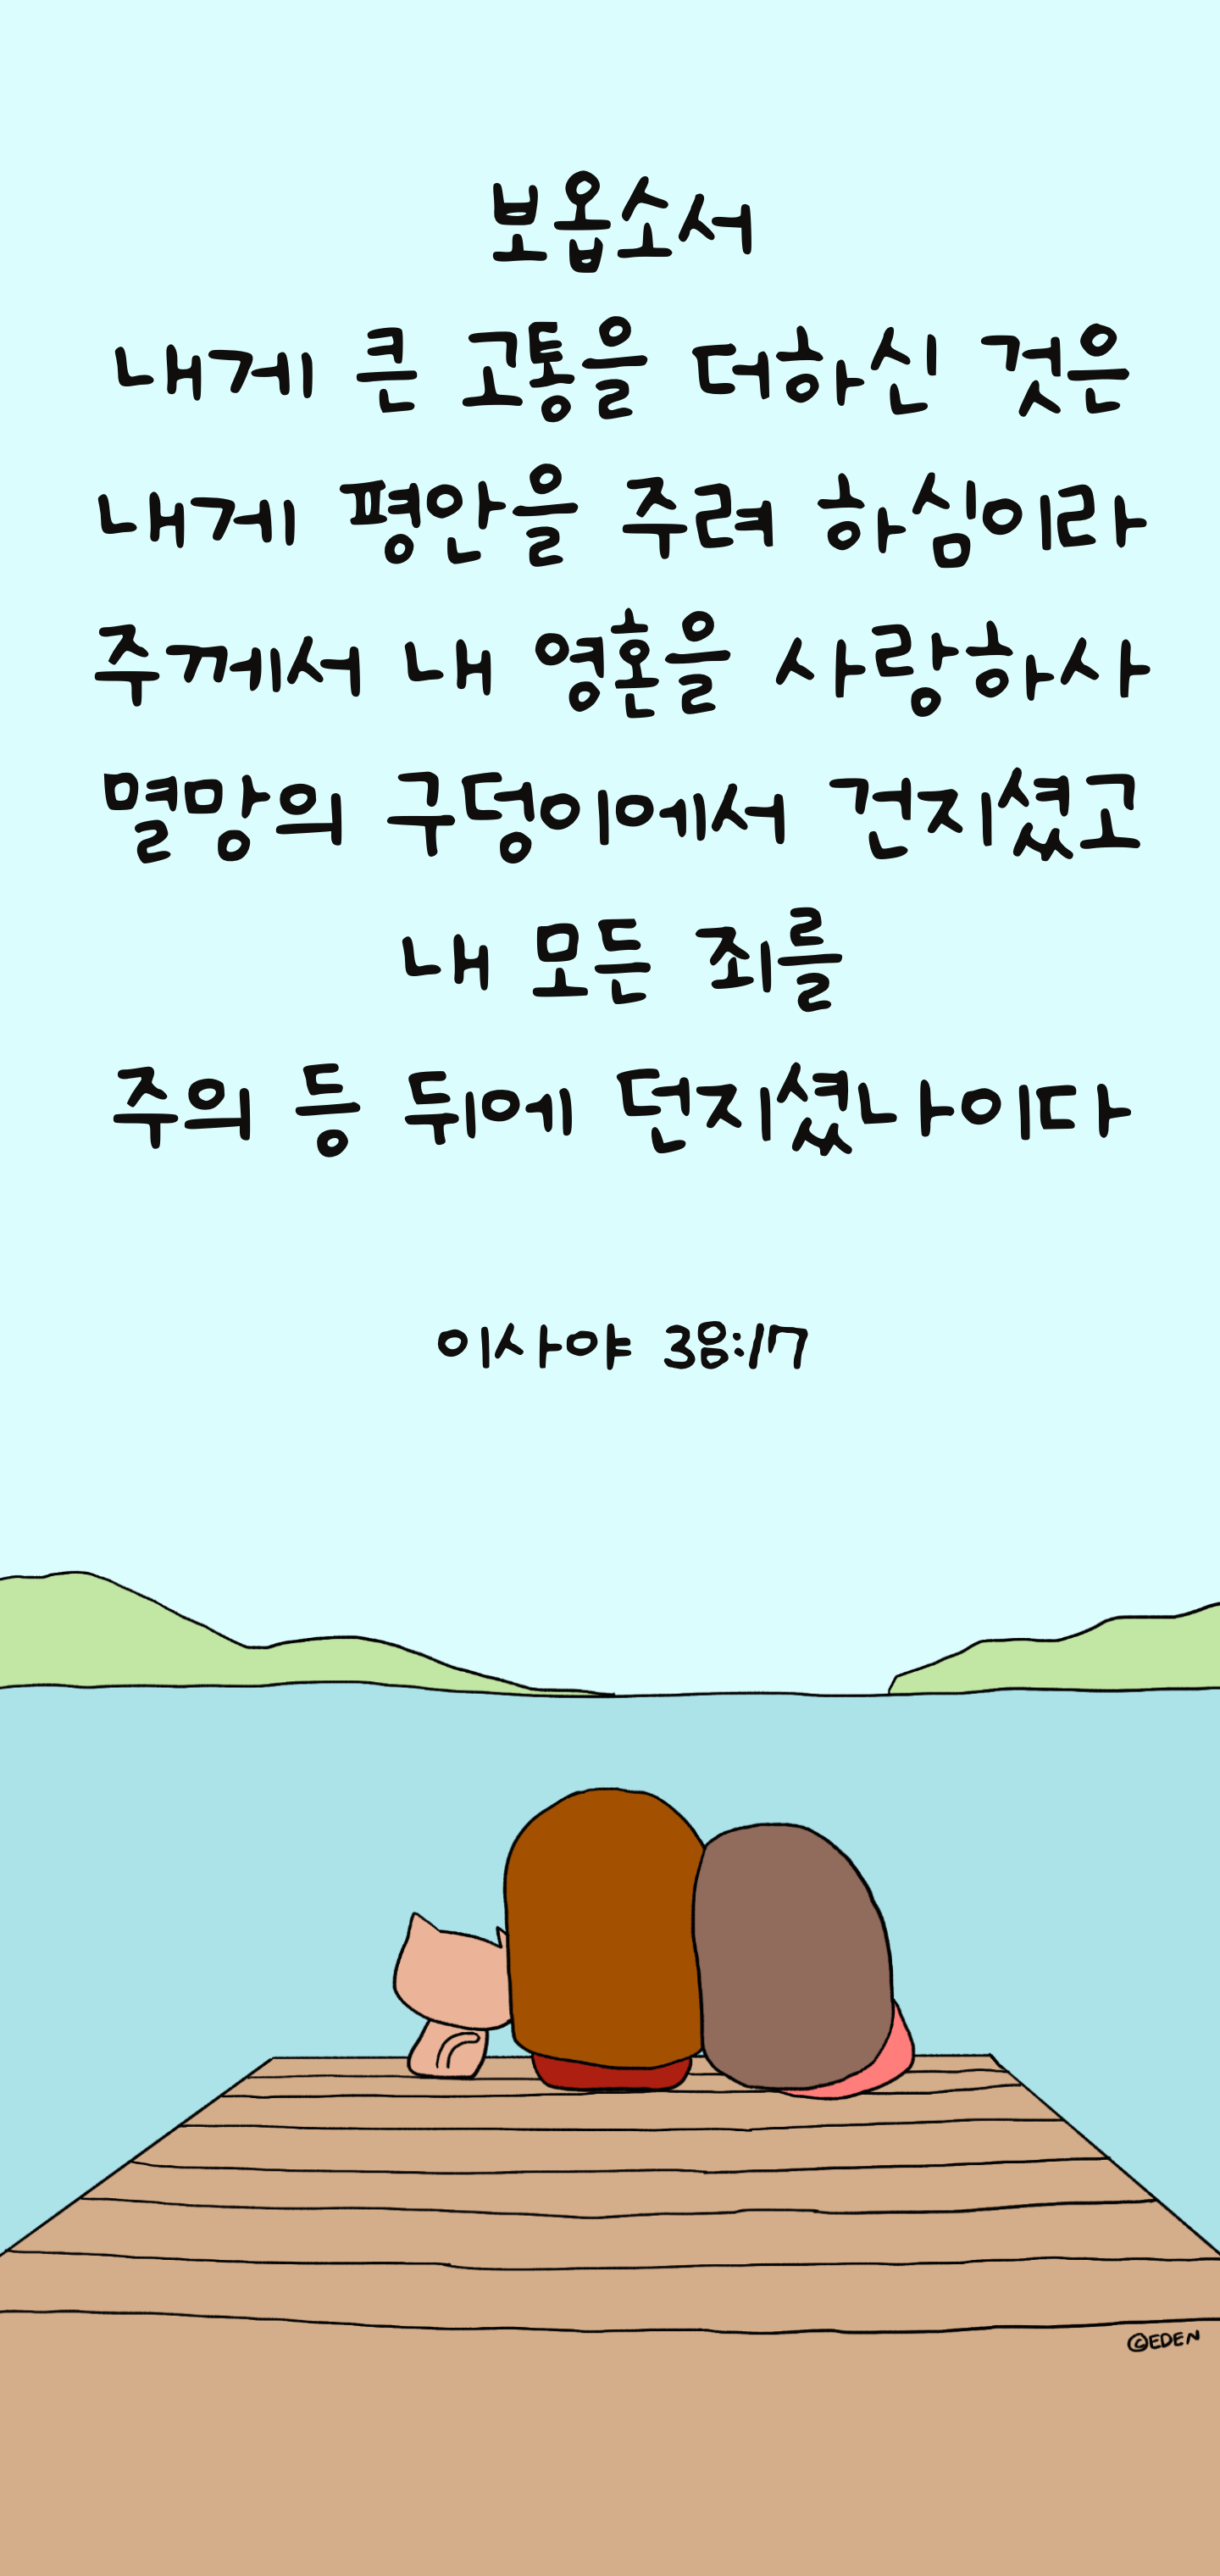 보옵소서
내게 큰 고통을 더하신 것은
내게 평안을 주려 하심이라
주께서 내 영혼을 사랑하사
멸망의 구덩이에서 건지셨고
내 모든 죄를
주의 등 뒤에 던지셨나이다
이사야 38:17
©EDEN